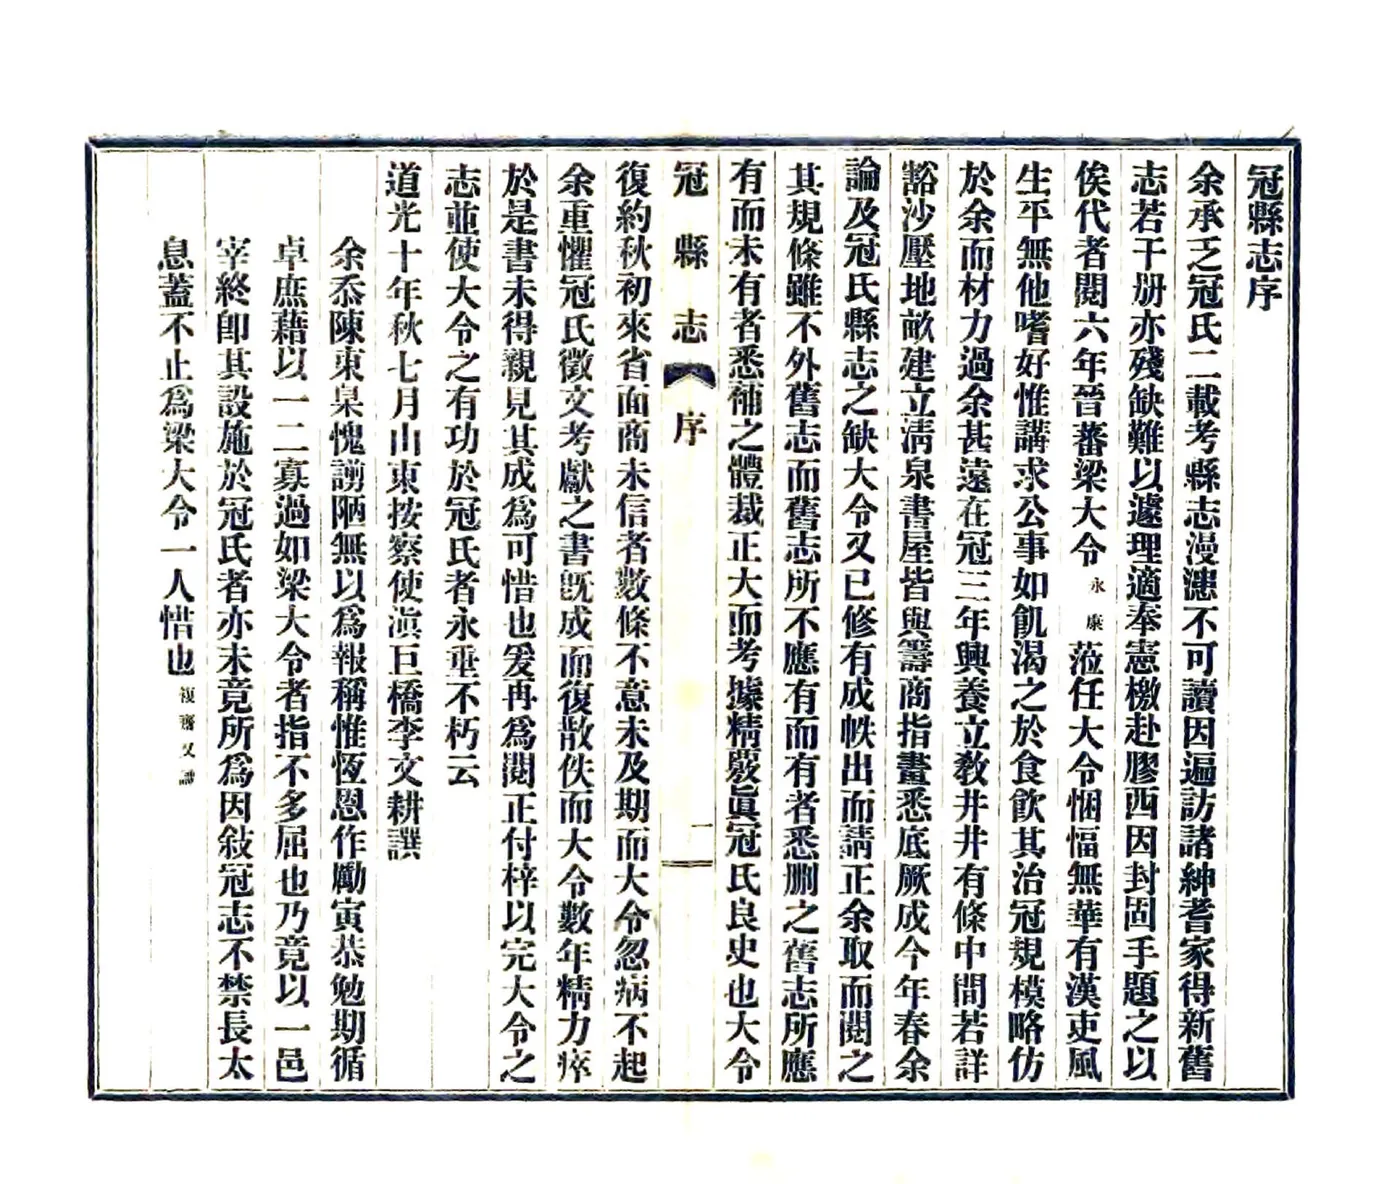 冠縣志序
余承乏冠氏二載考縣志漫漶不可讀因遍訪諸紳耆家得新舊
志若干册亦殘缺難以遽理適奉憲檄赴膠西因封固手題之以
俟代者閱六年晉蕃梁大令永康蒞任大令悃愊無華有漢吏風
生平無他嗜好惟講求公事如飢渴之於食飲其治冠規模略仿
於余而材力過余甚遠在冠三年興養立教井井有條中間若詳
豁沙壓地畝建立淸泉書屋皆與籌商指畫悉底厥成今年春余
論及冠氏縣志之缺大令又已修有成帙出而請正余取而閱之
其規條雖不外舊志而舊志所不應有而有者悉删之舊志所應
有而未有者悉補之體裁正大而考據精覈眞冠氏良史也大令
冠縣志 序 一
復約秋初來省面商未信者數條不意未及期而大令忽病不起
余重懼冠氏徵文考獻之書旣成而復散佚而大令數年精力瘁
於是書未得親見其成爲可惜也爰再爲閱正付梓以完大令之
志並使大令之有功於冠氏者永垂不朽云
道光十年秋七月山東按察使滇巨橋李文耕譔
余忝陳東臬愧謭陋無以爲報稱惟恆恩作勵寅恭勉期循
卓庶藉以一二寡過如梁大令者指不多屈也乃竟以一邑
宰終卽其設施於冠氏者亦未竟所爲因敍冠志不禁長太
息蓋不止爲梁大令一人惜也複齋又譔